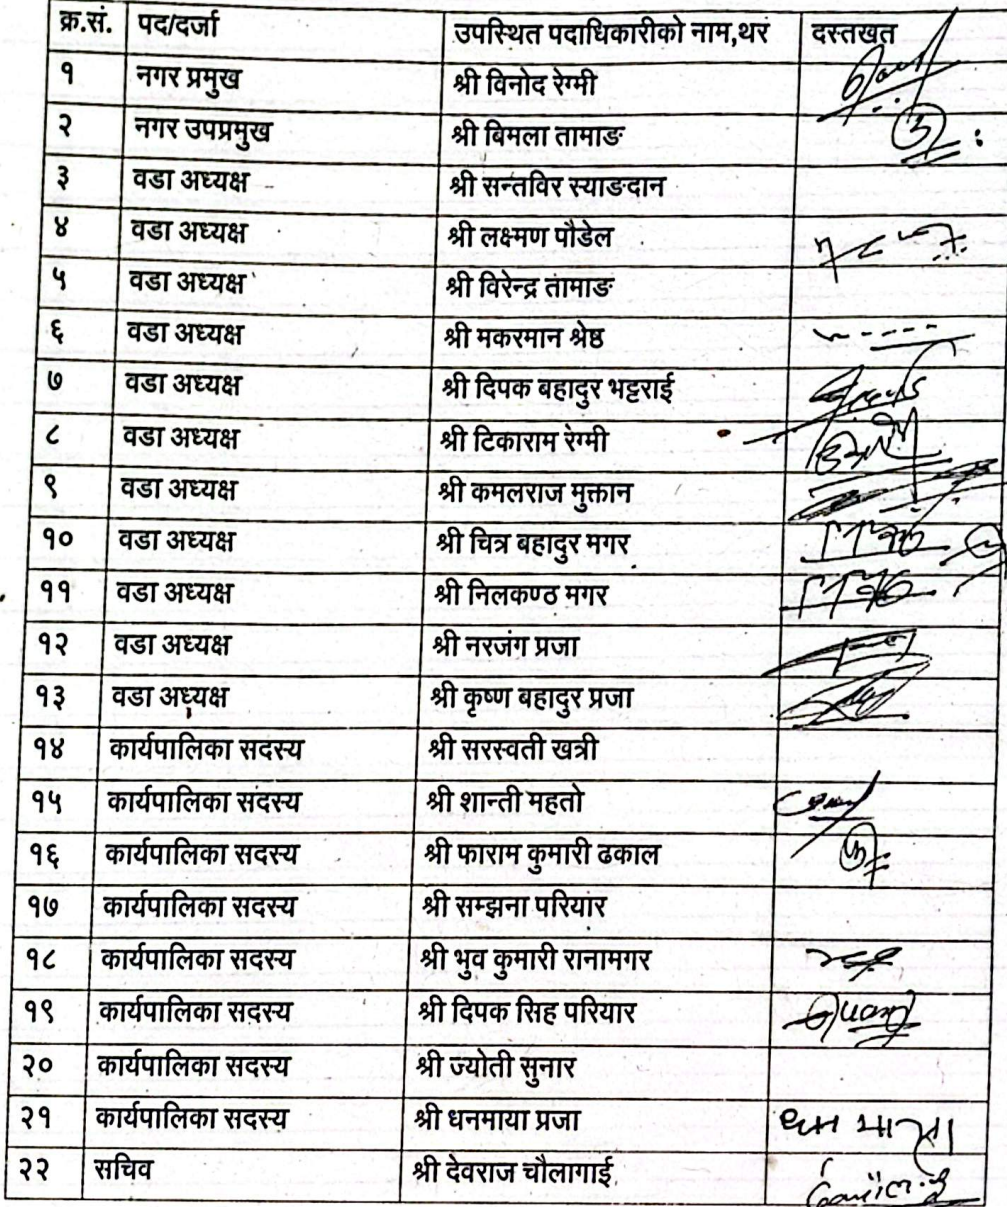 क्र.सं. पद/दर्जा उपस्थित पदाधिकारीको नाम,थर दस्तखत
१ नगर प्रमुख श्री विनोद रेग्मी
२ नगर उपप्रमुख श्री बिमला तामाङ
३ वडा अध्यक्ष श्री सन्तविर स्याङदान
४ वडा अध्यक्ष श्री लक्ष्मण पौडेल
५ वडा अध्यक्ष श्री विरेन्द्र तामाङ
६ वडा अध्यक्ष श्री मकरमान श्रेष्ठ
७ वडा अध्यक्ष श्री दिपक बहादुर भट्टराई
८ वडा अध्यक्ष श्री टिकाराम रेग्मी
९ वडा अध्यक्ष श्री कमलराज मुक्तान
१० वडा अध्यक्ष श्री चित्र बहादुर मगर
११ वडा अध्यक्ष श्री निलकण्ठ मगर
१२ वडा अध्यक्ष श्री नरजंग प्रजा
१३ वडा अध्यक्ष श्री कृष्ण बहादुर प्रजा
१४ कार्यपालिका सदस्य श्री सरस्वती खत्री
१५ कार्यपालिका सदस्य श्री शान्ती महतो
१६ कार्यपालिका सदस्य श्री फाराम कुमारी ढकाल
१७ कार्यपालिका सदस्य श्री सम्झना परियार
१८ कार्यपालिका सदस्य श्री भुव कुमारी रानामगर
१९ कार्यपालिका सदस्य श्री दिपक सिह परियार
२० कार्यपालिका सदस्य श्री ज्योती सुनार
२१ कार्यपालिका सदस्य श्री धनमाया प्रजा धन माया
२२ सचिव श्री देवराज चौलागाई